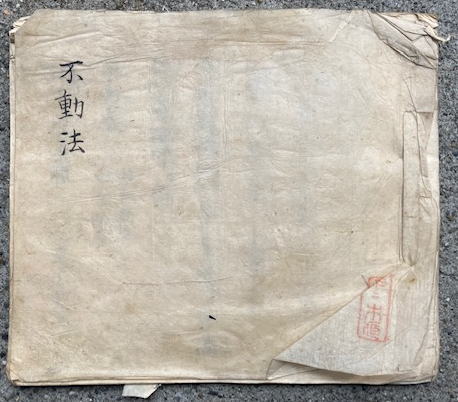 不動法